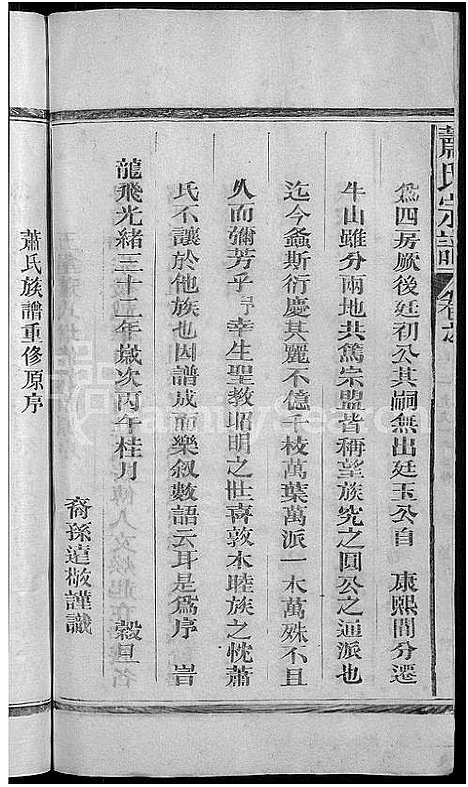 蕭氏宗譜
卷之
爲四房厥後廷初公其嗣無出廷玉公自 康熙間分遷
牛山雖分兩地共篤宗盟皆稱望族究之圓公之通派也
迄今螽斯衍慶其麗不億千枝萬葉萬派一木萬殊不且
久而彌芳乎予幸生聖教昭明之世喜敦木睦族之忱蕭
氏不讓於他族也因譜成而樂叙數語云耳是爲序 岩
龍飛光緒三十二年歲次丙午桂月 穀旦
裔孫遠 謹識
蕭氏族譜重修原序